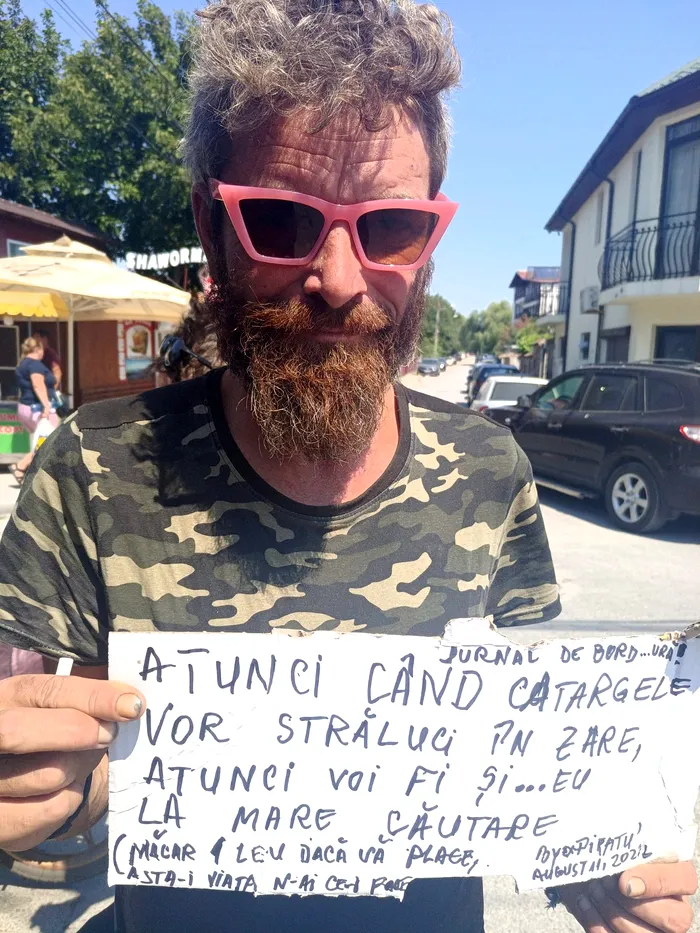 SHAWORM
JURNAL DE BORD...URA!
ATUNCI CÂND CATARGELE
VOR STRĂLUCI ÎN ZARE,
ATUNCI VOI FI ȘI...EU
LA MARE CĂUTARE
(MĂCAR 1 LEU DACĂ VĂ PLACE,
ASTA-I VIAȚA N-AI CE-I FACE
BY EXPIRATU'
AUGUST